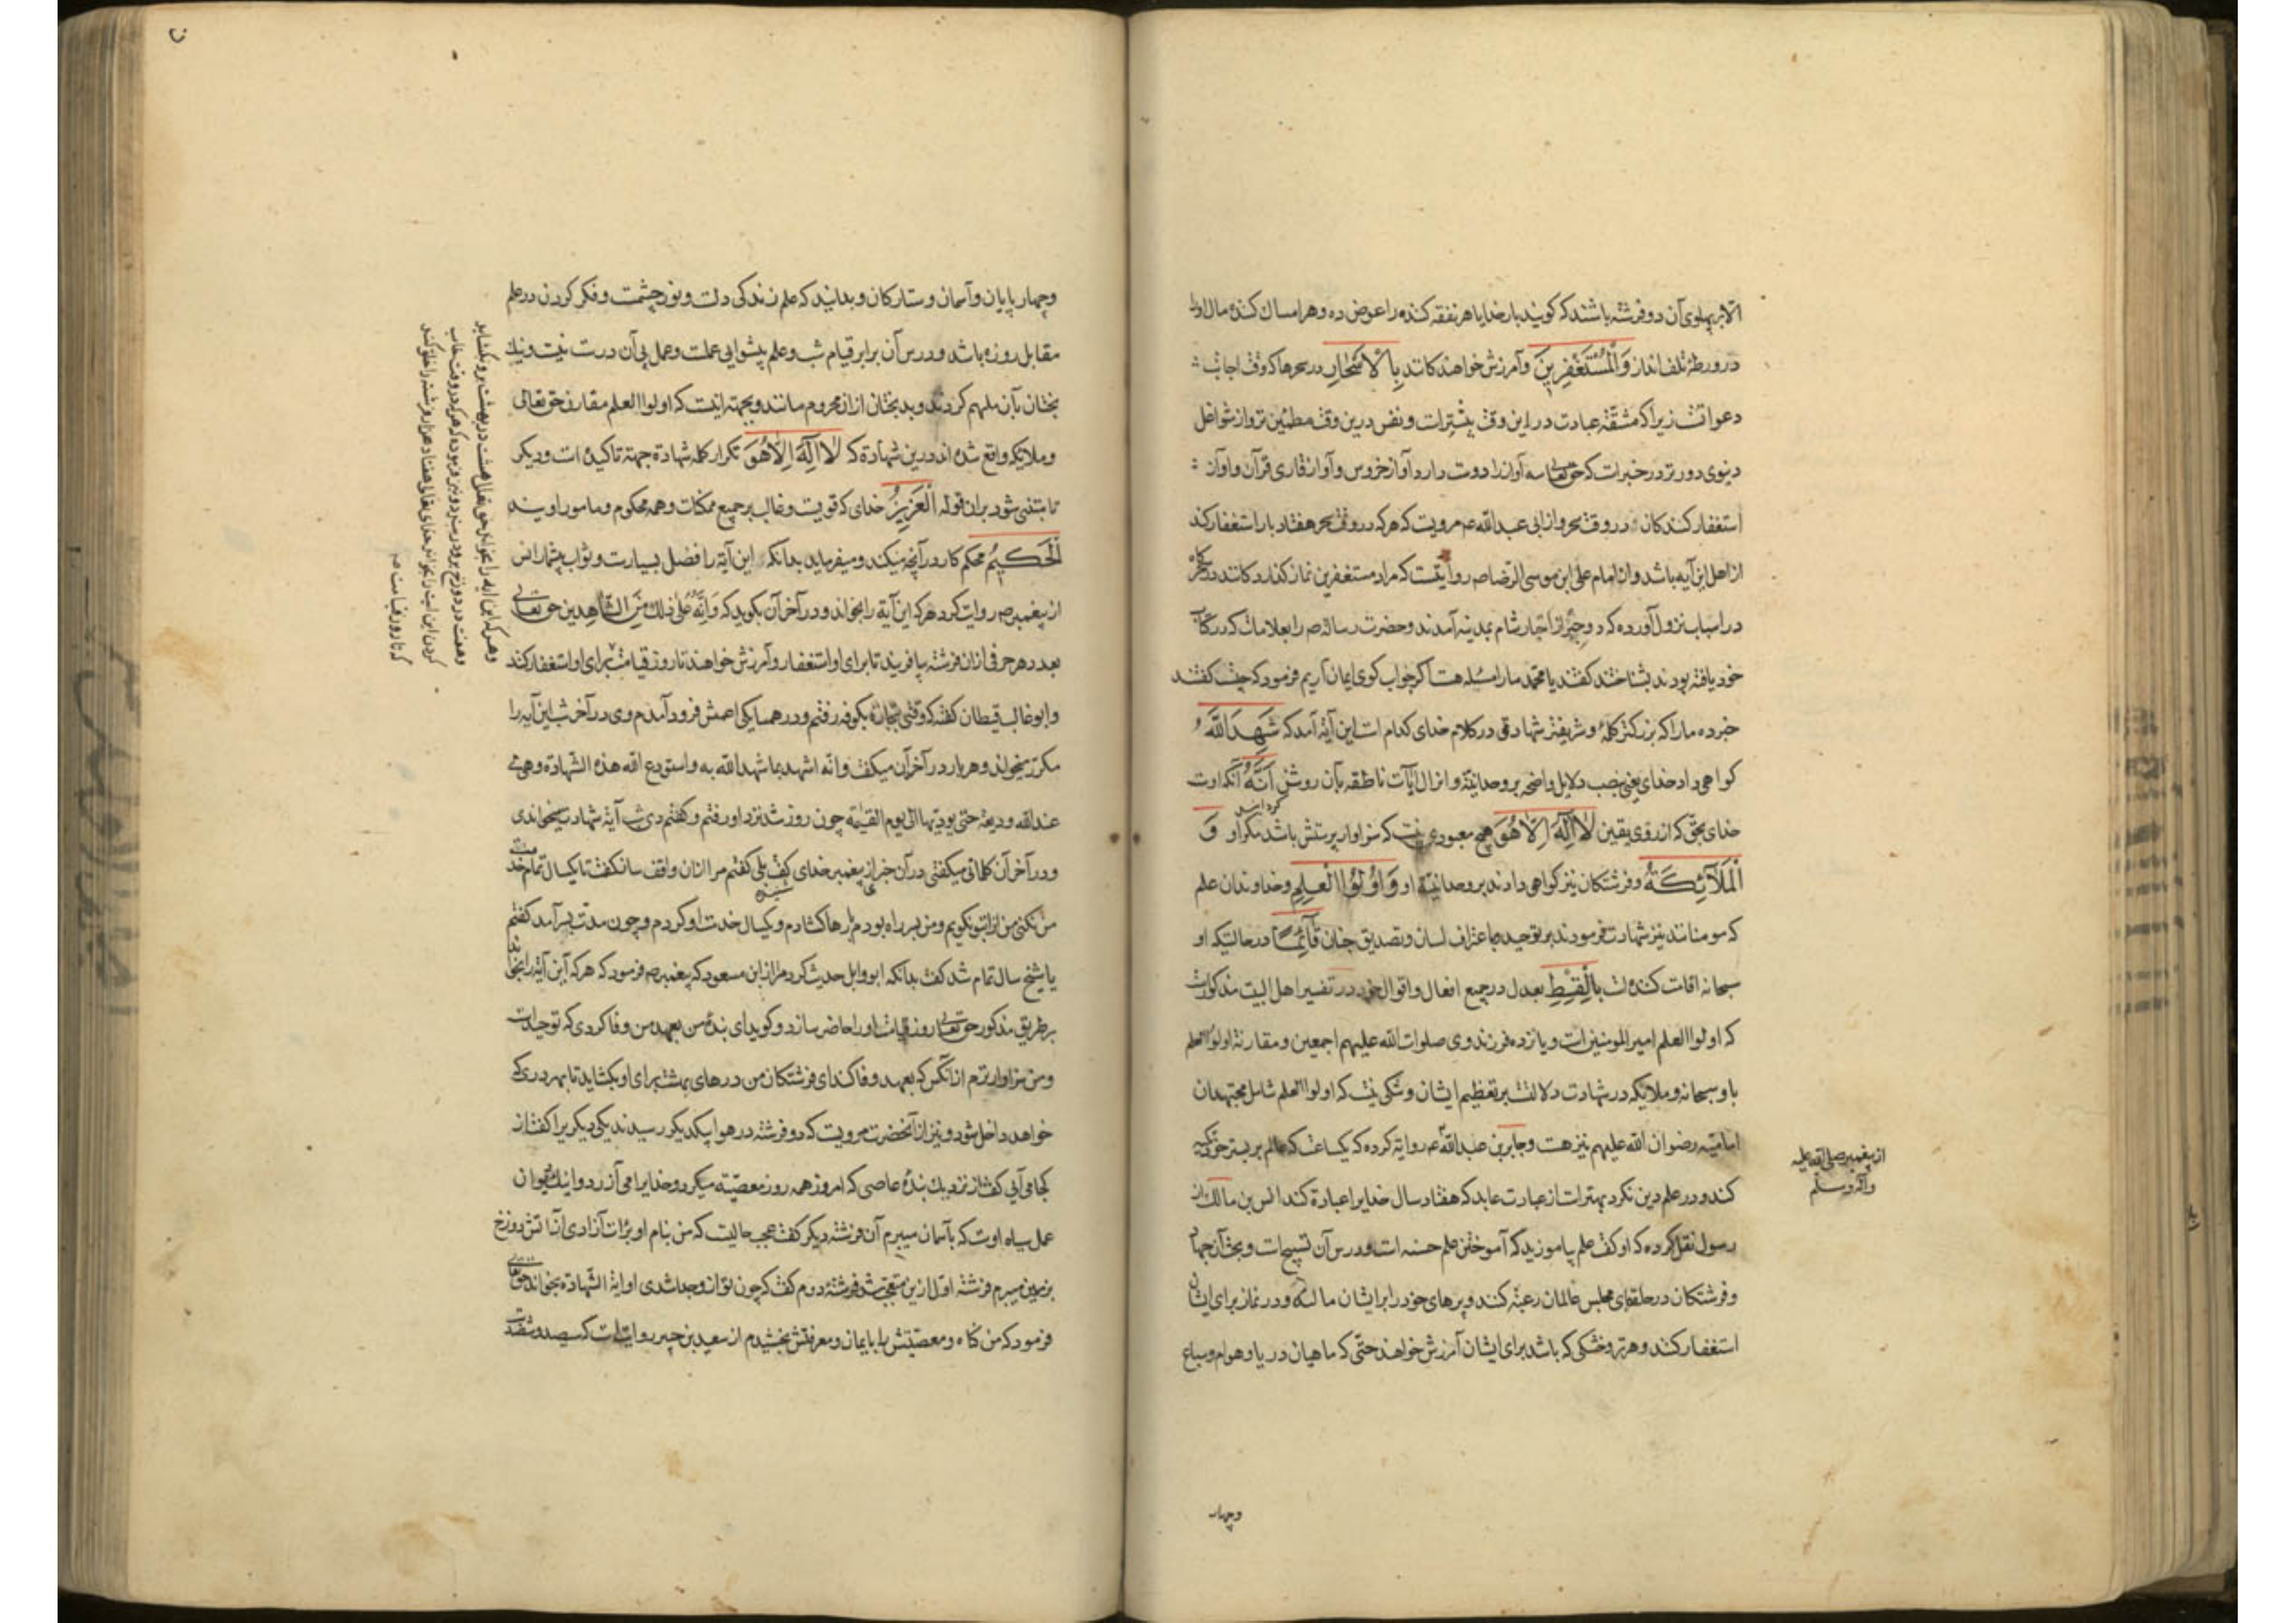 الا بر پهلوی آن دو فرشته باشند که کویند بار خدایا هر نفقه کننده را عوض ده و هر امساک کننده مال او را
در ورطهٔ تلف انداز وَالْمُسْتَغْفِرِينَ وآمرزش خواهند کانند بِالْأَسْحَارِ در سحرها که وقت اجابت
دعواتست زیرا که مشقّة عبادت در این وقت بیشترات و نفس درین وقت مطمئین تر و از شواغل
دنیوی دورتر در خبرات که حق تعالی سه آواز را دوست دارد آواز خروس و آواز قاری قرآن و آواز
استغفار کنندکان در وقت سحر و از ابی عبد الله ع مرویست که هر که در وقت سحر هفتاد بار استغفار کند
از اهل این آیه باشد و از امام علی ابن موسی الرضا ص روایتست که مراد مستغفرین نماز کذارد کانند در سحرکاه
در اسباب نزول آورده که دو حبر از احبار شام بمدینه آمدند وحضرت رساله ص را بعلامات که در کتاب
خود یافته بودند بشناختند کفتند یا محمد ما را مسئله هست اکر جواب کوی ایمان آریم فرمود که چیست کفتند
خبر ده ما را که بزرکتر کلمهٔ و شریفتر شهادتی در کلام خدای کدام است این آیة آمد که شَهِدَ اللَّهُ
کواهی داد خدای یعنی نصب دلایل واضحه بر وحدانیة و انزال آیات ناطقه بآن روشن کردانید أَنَّهُ آنکه اوست
خدای بحق که از روی یقین لَا إِلَهَ إِلَّا هُوَ هیچ معبودی نیست که سزاوار پرستش باشد مکر او وَ
الْمَلَائِكَةُ و فرشتکان نیز کواهی دادند بر وحدانیة او وَأُولُوا الْعِلْمِ وخداوندان علم
که مومنانند نیز شهادت فرمودند بر توحید با اعتراف لسان وتصدیق جنان قَائِمًا در حالتیکه او
سبحانه اقامت کننده است بِالْقِسْطِ بعدل در جمیع افعال و اقوال خود در تفسیر اهل البیت مذکورست
که اولوا العلم امیر المومنین ات و یازده فرزند وی صلوات الله علیهم اجمعین و مقارنة اولوا العلم
با و سبحانه و ملایکه در شهادت دلالتست بر تعظیم ایشان و شکی نیست که اولوا العلم شامل مجتهدان
امامیه رضوان الله علیهم نیز هست و جابر بن عبد الله ع روایة کرده که یکساعت که عالم بر بستر خود تکیه
کند و در علم دین نکرد بهترات از عبارت عابد که هفتاد سال خدایرا عبادة کند انس بن مالک از
رسول نقل کرده که او کفت علم بیاموزید که آموختن علم حسنه است و درس آن تسبیح است و بحث آن جهاد
و فرشتکان در حلقهای مجلس عالمان رغبة کنند و پرهای خود را بر ایشان مالند و در نماز برای ایشان
استغفار کنند و هر تر و خشکی که باشد برای ایشان آمرزش خواهند حتی که ماهیان دریا و هوام و سباع
از پیغمبر صلی الله علیه
وآله وسلم
وچهار
وچهار پایان و آسمان و ستارکان و بدانید که علم زندکی دلست و نور چشمست و فکر کردن در علم
مقابل روزه باشد و درس آن برابر قیام شب و علم پیشوای عملست و عمل پی آن درست نیست و نیک
بختان بآن ملهم کردند و بدبختان از آن محروم مانند و بجهة اینست که اولوا العلم مقارن حق تعالی
و ملایکه واقع شده اند درین شهادة که لَا إِلَهَ إِلَّا هُوَ تکرار کلمه شهادة جهة تاکید است و دیکر
تا مبتنی شود بر ان قوله الْعَزِيزُ خدای که قویست و غالب بر جمیع ممکنات و همه محکوم و مامور اویند
الْحَكِيمُ محکم کار در آنچه میکند و میفرماید بدانکه این آیة را فضل بسیارست و ثواب بیشمار انس
از پیغمبر ص روایت کرد هر که این آیة را بخواند و در آخر آن بکوید که وَأَنَّهُ عَلَى ذَلِكَ مِنَ الشَّاهِدِين حق تعالی
بعدد هر حرفی از آن فرشته بیافریند تا برای او استغفار و آمرزش خواهند تا روز قیامت برای او استغفار کند
و ابو غالب قیطان کفته که وقتی بتجارة بکوفه رفتم و در همسایکی اعمش فرود آمدم وی در آخر شب این آیه را
مکرر میخواند و هر بار در آخر آن میکفت وانه اشهد بما شهد الله به واستودع الله هذه الشهادة وهی
عند الله ودیعة حتی یودیها الی یوم القیمة چون روز شد نزد او رفتم و کفتم دی شب آیة شهادت میخواندی
و در آخر آن کلماتی میکفتی در آن خبر از پیغمبر خدای کفت بلی کفتم مرا از آن واقف ساز کفت تا یکسال تمام خدمت
من نکنی من آنرا بتو نکویم و من بر سر راه بودم بارها کشادم و یکسال خدمت او کردم و چون مدت بسر آمد کفتم
یا شیخ سال تمام شد کفت بدانکه ابو وایل حدیث کرد مرا از ابن مسعود که پیغمبر ص فرمود که هر که این آیة را بخواند
بر طریق مذکور حق تعالی روز قیامت او را حاضر سازد و کوید ای بندهٔ من بعهد من وفا کردی که توحید است
و من سزاوارترم از آنکس که بعهد وفا کند ای فرشتکان من درهای بهشت برای او بکشاید تا بهر دری که
خواهد داخل شود و نیز از آنحضرت مرویست که دو فرشته در هوا بیکدیکر رسیدند یکی دیکر یرا کفت از
کجا می آیی کفت از نزدیک بندهٔ عاصی که امروز همه روز معصیة میکرد و خدایرا می آزرد و اینک دیوان
عمل سیاه اوست که بآسمان میبرم آن فرشته دیکر کفت عجب حالیست که من بنام او برات آزادی از آتش دوزخ
بزمین میبرم فرشته اول ازین متعجب شد فرشتهٔ دوم کفت که چون تو از وی جدا شدی او آیة الشهادة بخواند حق تعالی
فرمود که من کناه و معصیتش را بایمان و معرفتش بخشیدم از سعید بن جبیر روایتست که سیصد و شصت
وهر که این آیه را بخواند حق تعالی هشت در بهشت برو بکشاید
وهفت در دوزخ برو در بندد و نیز فرموده که هر که در وقت خواب
کردن این آیت را بخواند خدای تعالی هفتاد هزار فرشته را خلق کند
که تا روز قیامت